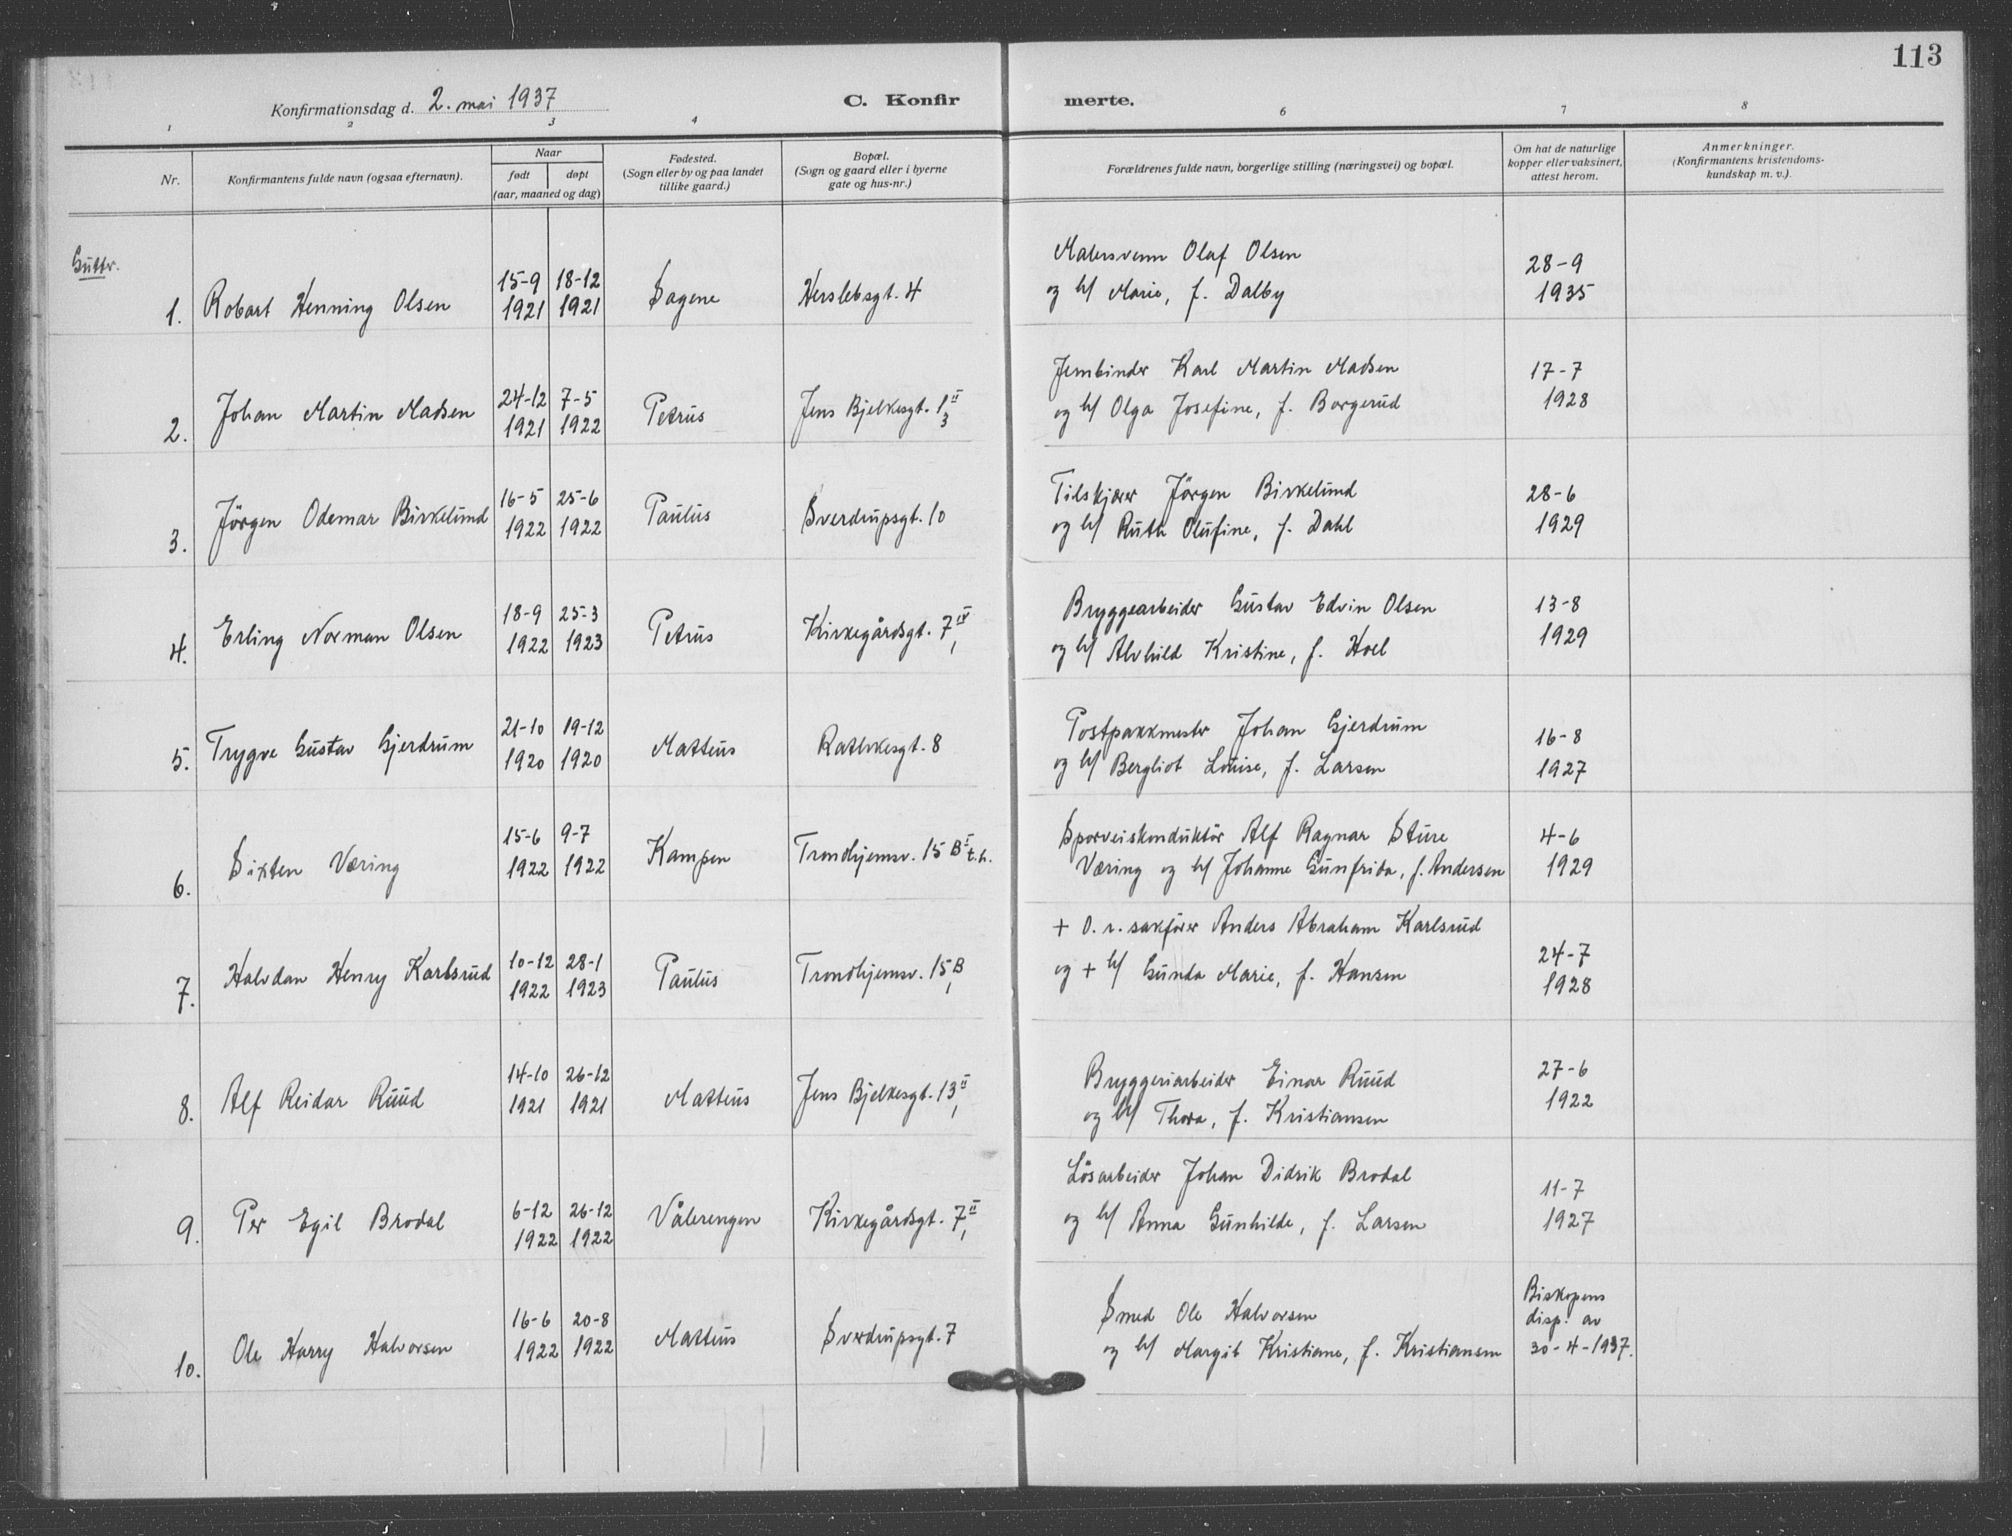 113
Konfirmationsdag d. 2. mai 1937
C. Konfirmerte.
1 2 3 4 6 7 8
Nr.
Konfirmantens fulde navn (ogsaa efternavn).
Naar
født døpt
(aar, maaned og dag)
Fødested.
(Sogn eller by og paa landet
tillike gaard.)
Bopæl.
(Sogn og gaard eller i byerne
gate og hus-nr.)
Forældrenes fulde navn, borgerlige stilling (næringsvei) og bopæl.
Om hat de naturlige
kopper eller vaksinert,
attest herom.
Anmerkninger.
(Konfirmantens kristendoms-
kundskap m. v.).
Gutter.
1. Robart Henning Olsen 15-9 1921 18-12 1921 Sagene Herslebsgt. 4
Malersvenn Olaf Olsen
og h/ Marie, f. Dalby
28-9
1935
2. Johan Martin Madsen 24-12 1921 7-5 1922 Petrus Jens Bjelkesgt. 13 II
Jernbinder Karl Martin Madsen
og h/ Olga Josefine, f. Borgerud
17-7
1928
3. Jörgen Odemar Birkelund 16-5 1922 25-6 1922 Paulus Sverdrupsgt. 10
Tilskjærer Jörgen Birkelund
og h/ Ruth Olufine, f. Dahl
28-6
1929
4. Erling Norman Olsen 18-9 1922 25-3 1923 Petrus Kirkegårdsgt. 7, IV
Bryggearbeider Gustav Edvin Olsen
og h/ Alvhild Kristine, f. Hoel
13-8
1929
5. Trygve Gustav Gjerdrum 21-10 1920 19-12 1920 Matteus Rathkesgt. 8
Postpakkmester Johan Gjerdrum
og h/ Bergliot Louise, f. Larsen
16-8
1927
6. Sixten Væring 15-6 1922 9-7 1922 Kampen Trondhjemsv. 15 B I t.h.
Sporveiskonduktör Alf Ragnar Sture
Væring og h/ Johanne Gunfrida, f. Andersen
4-6
1929
7. Halvdan Henry Karlsrud 10-12 1922 28-1 1923 Paulus Trondhjemsv. 15, B
+ O. r. sakförer Anders Abraham Karlsrud
og + h/ Gunda Marie, f. Hansen
24-7
1928
8. Alf Reidar Ruud 14-10 1921 26-12 1921 Matteus Jens Bjelkesgt. 13, II
Bryggeriarbeider Einar Ruud
og h/ Thora, f. Kristiansen
27-6
1922
9. Per Egil Brodal 6-12 1922 26-12 1922 Vålerengen Kirkegårdsgt. 7, II
Lösarbeider Johan Didrik Brodal
og h/ Anna Gunhilde, f. Larsen
11-7
1927
10. Ole Harry Halvorsen 16-6 1922 20-8 1922 Matteus Sverdrupsgt. 7
Smed Ole Halvorsen
og h/ Margit Kristiane, f. Kristiansen
Biskopens
disp. av
30-4-1937.